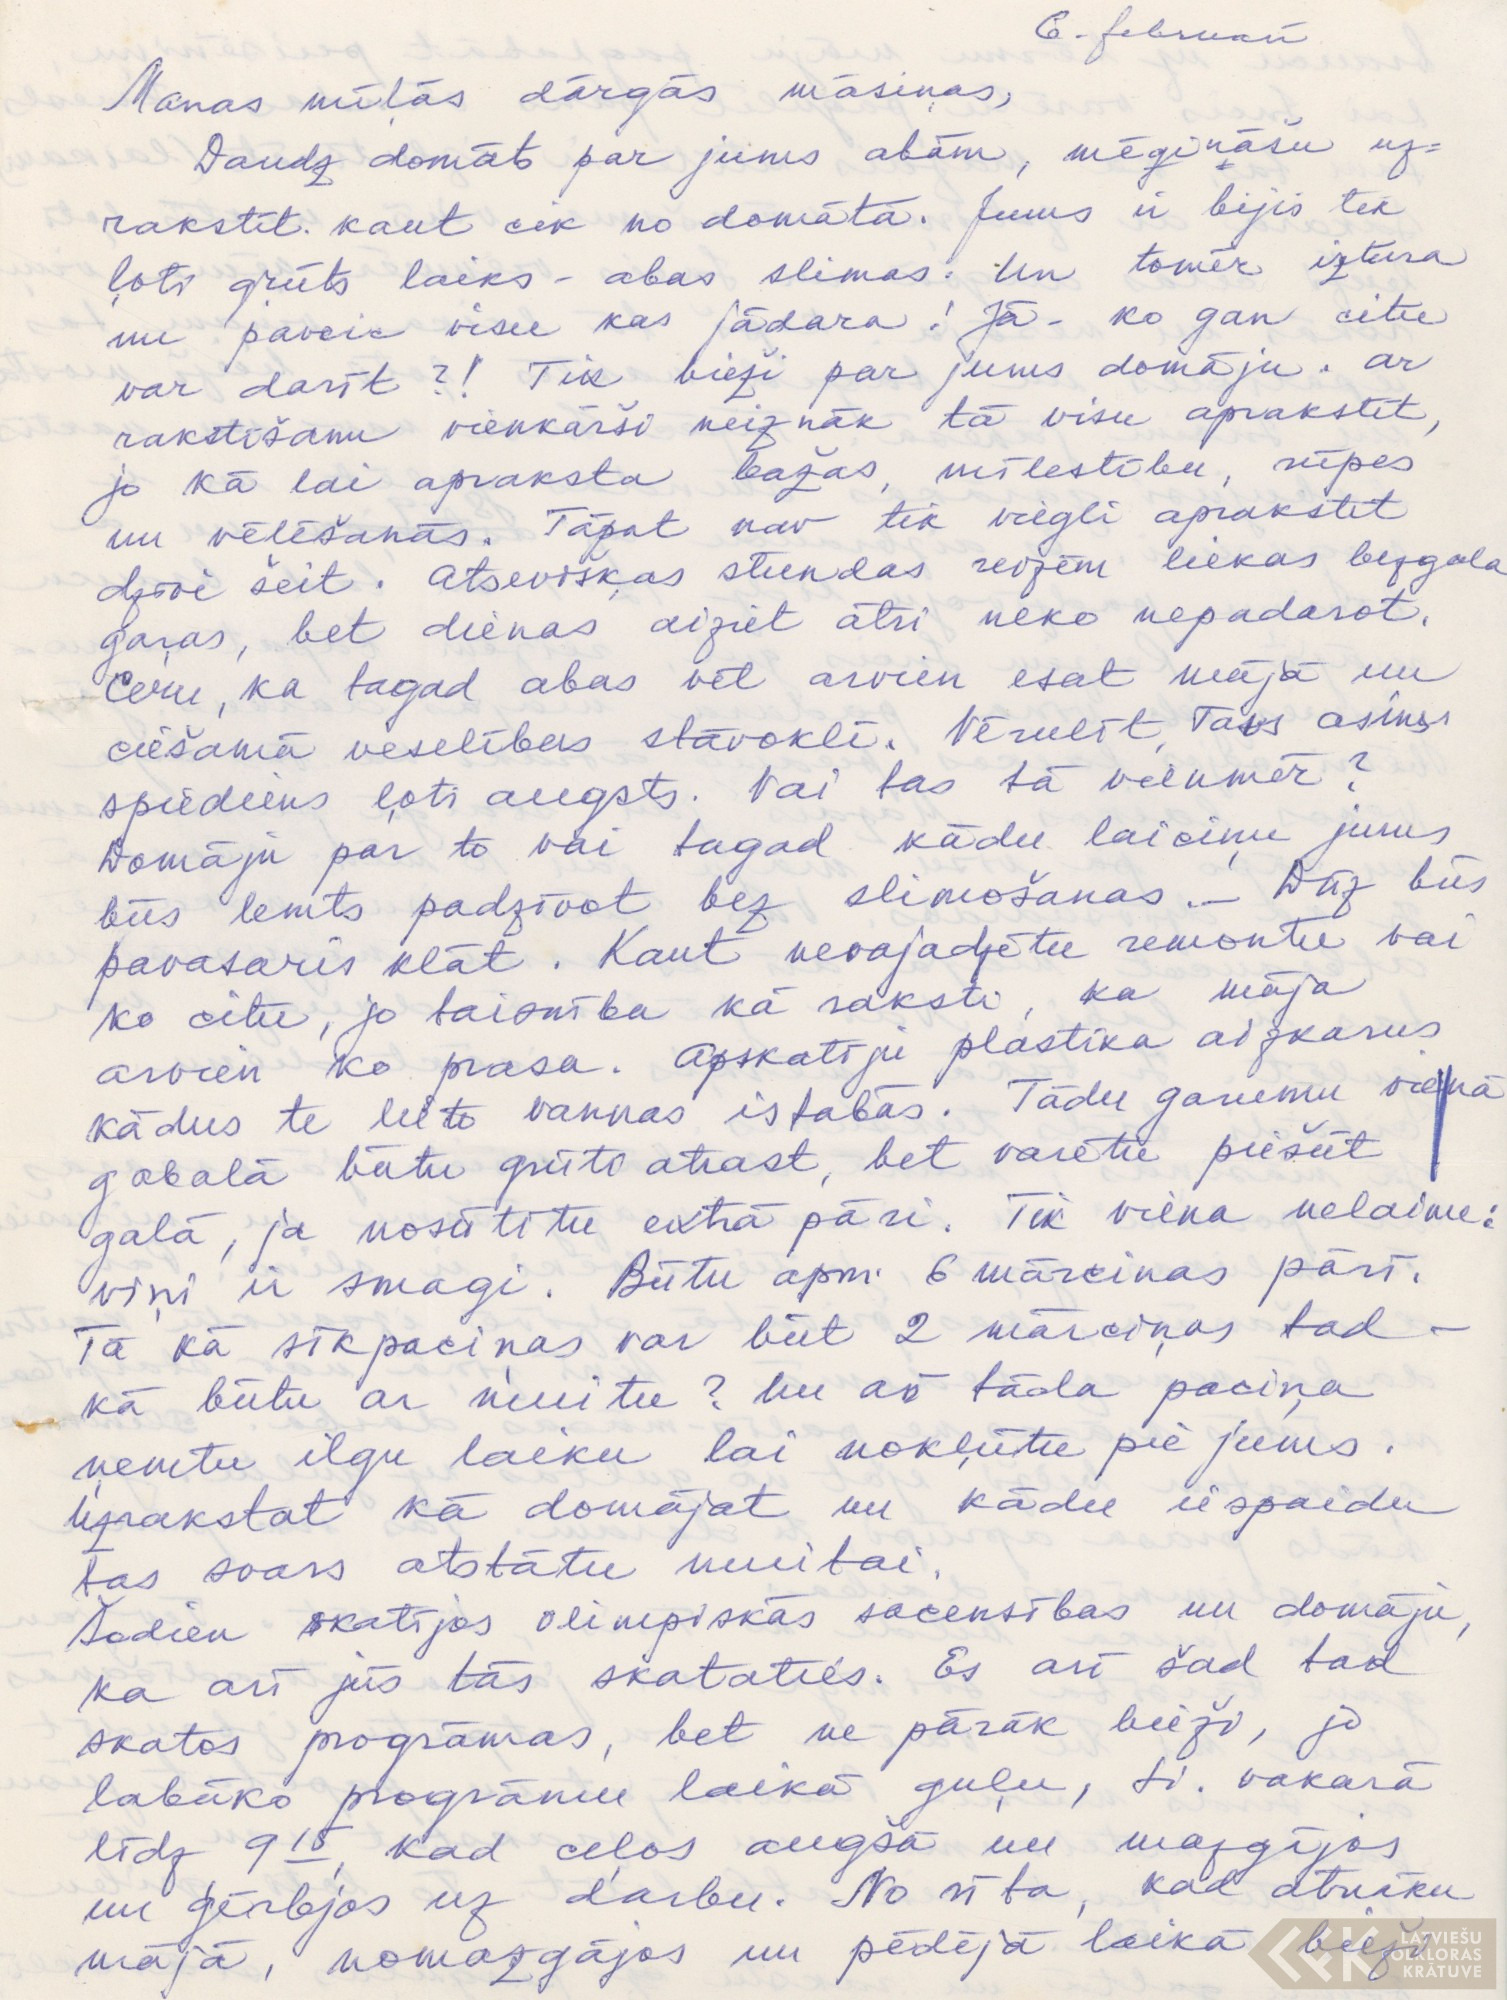 6. februārī
Manas mīļās dārgās māsiņas,
Daudz domāts par jums abām, mēģināšu uz=
rakstīt kaut cik no domātā. Jums ir bijis tik
ļoti grūts laiks - abas slimas. Un tomēr iztura
un paveic visu kas jādara! Jā - ko gan citu
var darīt?! Tik bieži par jums domāju. Ar
rakstīšanu vienkārši neiznāk tā visu aprakstīt,
jo kā lai apraksta bažas, mīlestību, rūpes
un vēlēšanās. Tāpat nav tik viegli aprakstīt
dzīvi šeit. Atsevišķas stundas reizēm liekas bezgala
garas, bet dienas aiziet ātri neko nepadarot.
Ceru, ka tagad abas vēl arvien esat mājā un
ciešamā veselības stāvoklī. Vērulīt, Tavs asins
spiediens ļoti augsts. Vai tas tā vienmēr?
Domāju par to vai tagad kādu laiciņu jums
būs lemts padzīvot bez slimošanas. - Drīz būs
pavasaris klāt. Kaut nevajadzētu remontu vai
ko citu, jo taisnība kā raksti, ka māja
arvien ko prasa. Apskatīju plastika aizkarus
kādus te lieto vannas istabās. Tādu garumu vienā
gabalā būtu grūti atrast, bet varētu piešūt
galā, ja nosūtītu extrā pāri. Tik viena nelaime:
viņi ir smagi. Būtu apm. 6 mārciņas pārī.
Tā kā sīkpaciņas var būt 2 mārciņas tad -
kā būtu ar muitu? Un arī tāda paciņa
ņemtu ilgu laiku lai nokļūtu pie jums.
Uzrakstat kā domājat un kādu iespaidu
tas svars atstātu muitai.
Šodien skatījos olimpiskās sacensības un domāju,
ka arī jūs tās skataties. Es arī šad tad
skatos programas, bet ne pārāk bieži, jo
labāko programu laikā guļu, t.i. vakarā
līdz 9 15, kad ceļos augšā un mazgājos
un ģērbjos uz darbu. No rīta, kad atnāku
mājā, nomazgājos un pēdējā laikā bieži
LATVIEŠU
FOLKLORAS
KRĀTUVE